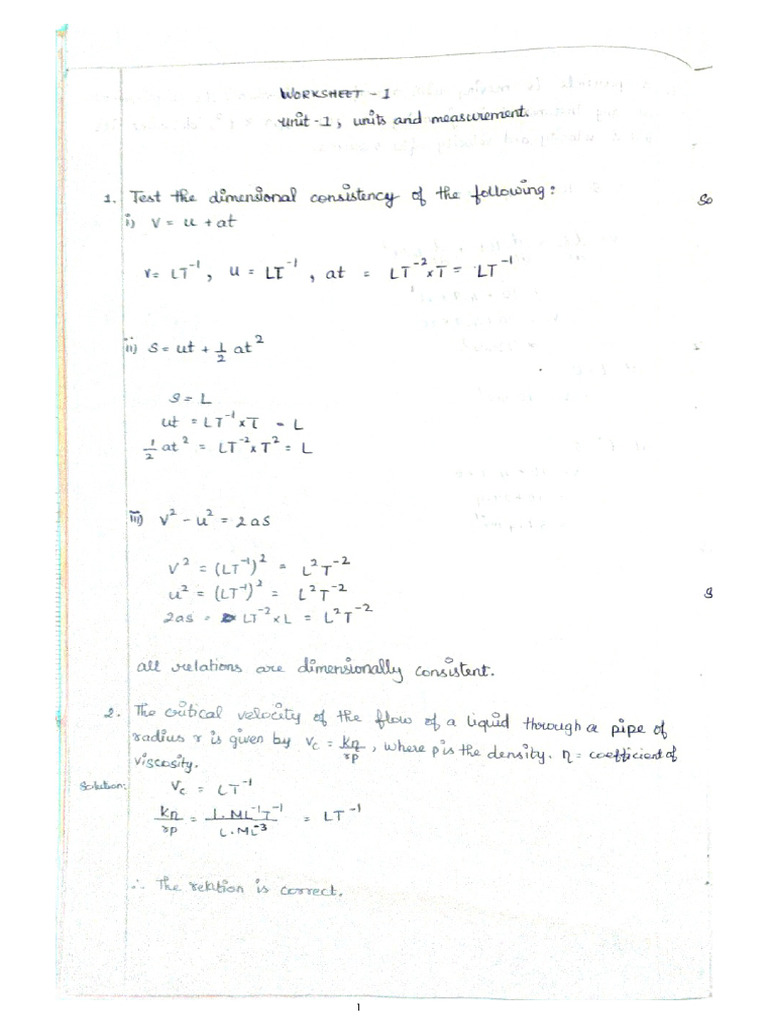 WORKSHEET - 1
unit - 1, units and measurement.
1. Test the dimensional consistency of the following:
i) V = u + at
v = LT⁻¹, u = LT⁻¹, at = LT⁻² × T = LT⁻¹
ii) S = ut + 1/2 at²
S = L
ut = LT⁻¹ × T = L
1/2 at² = LT⁻² × T² = L
iii) V² - u² = 2as
V² = (LT⁻¹)² = L²T⁻²
u² = (LT⁻¹)² = L²T⁻²
2as = LT⁻² × L = L²T⁻²
all relations are dimensionally consistent.
2. The critical velocity of the flow of a liquid through a pipe of
radius r is given by Vc = kη/rρ, where ρ is the density. η = coefficient of
viscosity.
Solution: Vc = LT⁻¹
kη/rρ = 1.ML⁻¹T⁻¹/L.ML⁻³ = LT⁻¹
∴ The relation is correct.
So
S
1